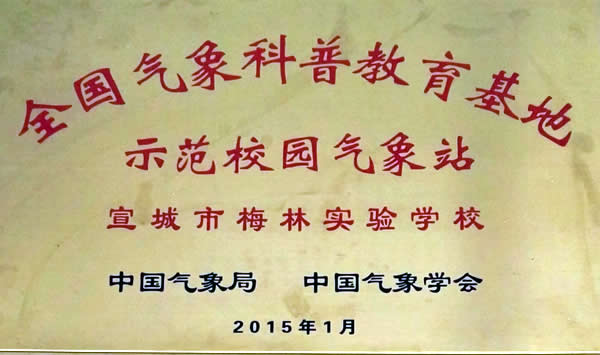 全国气象科普教育基地
示范校园气象站
宣城市梅林实验学校
中国气象局 中国气象学会
2015年1月